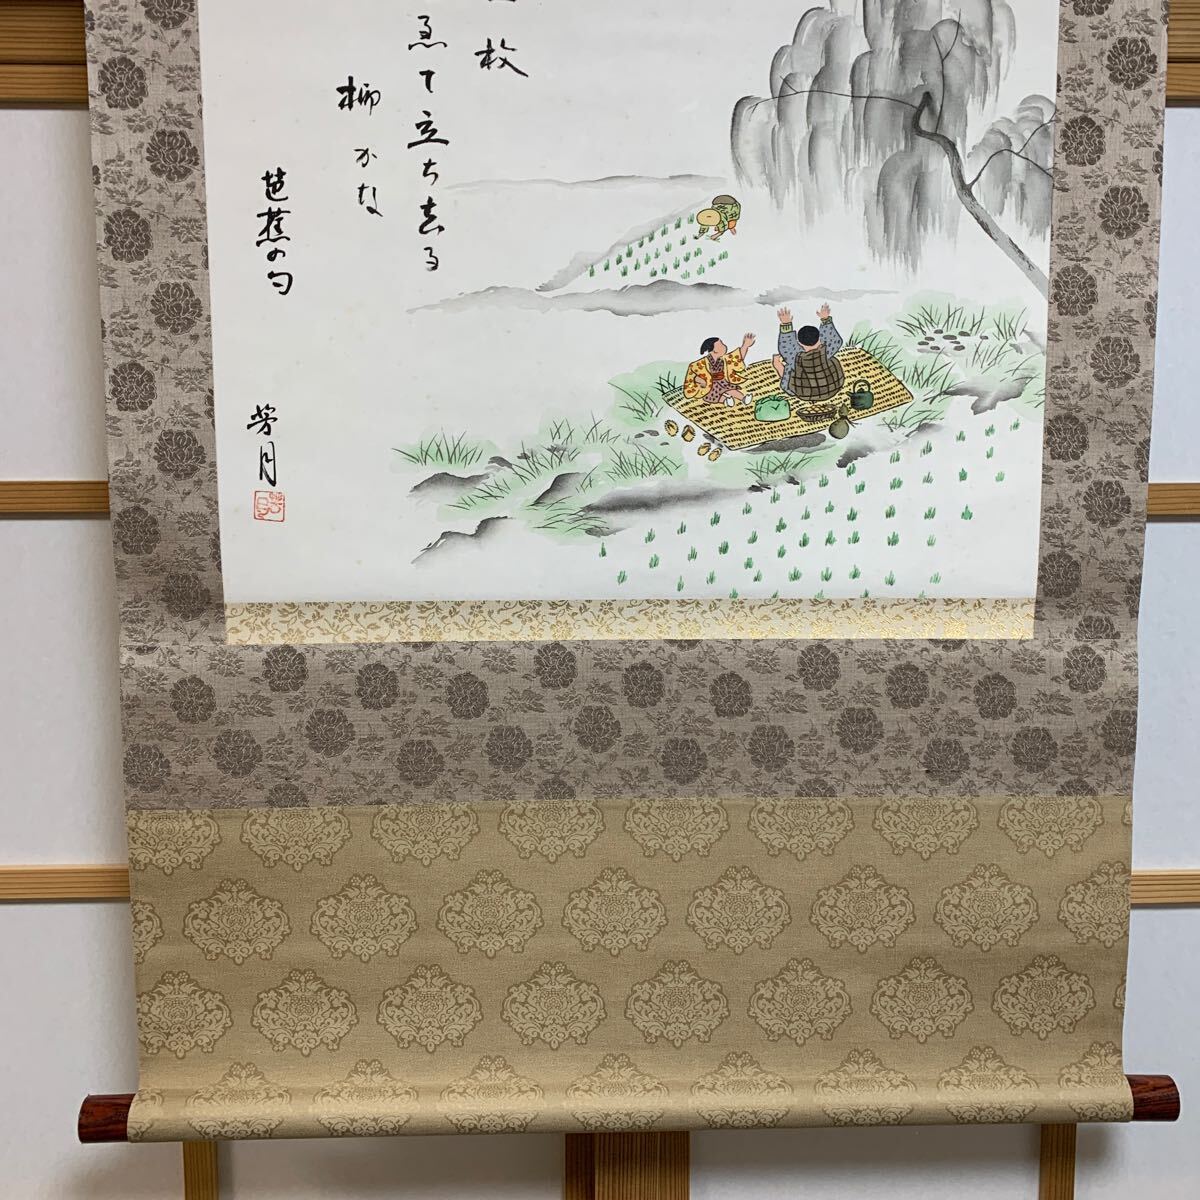 枚
植て立ち去る
柳かな
芭蕉の句
芳月